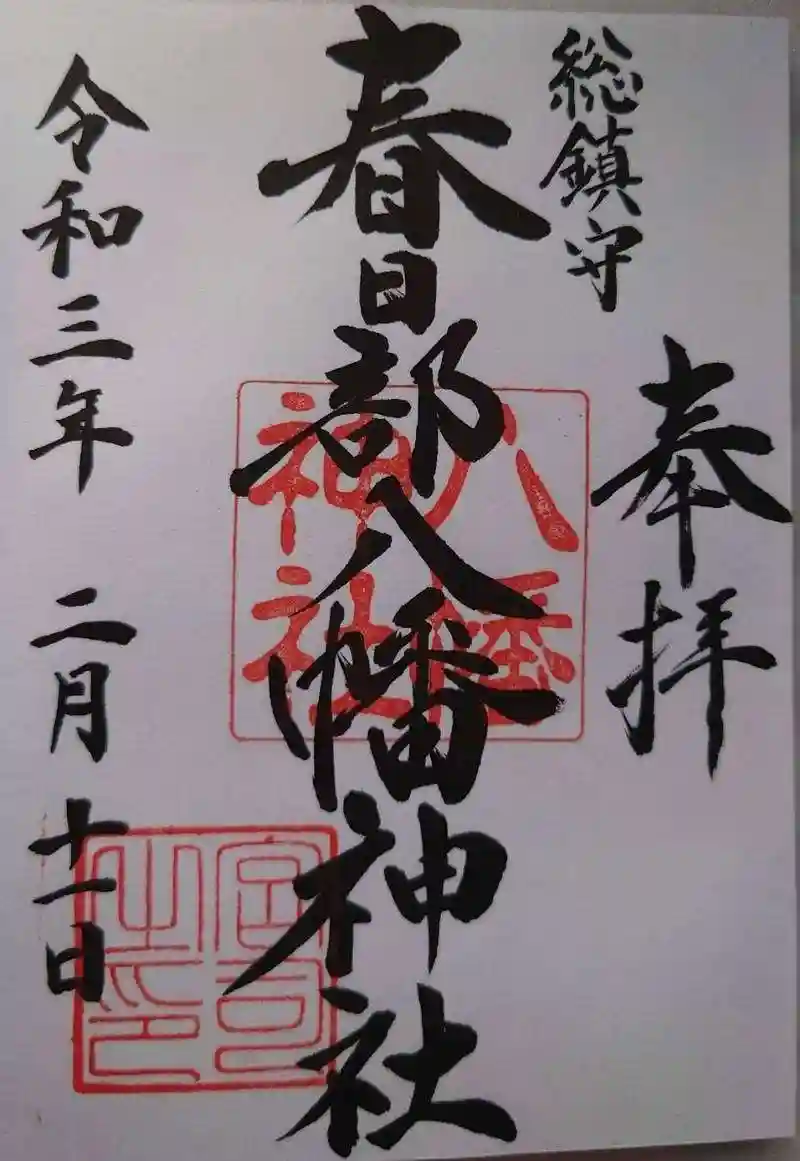 奉拝
総鎮守
春日部八幡神社
八幡
神社
宮司
之印
令和三年 二月 十一日